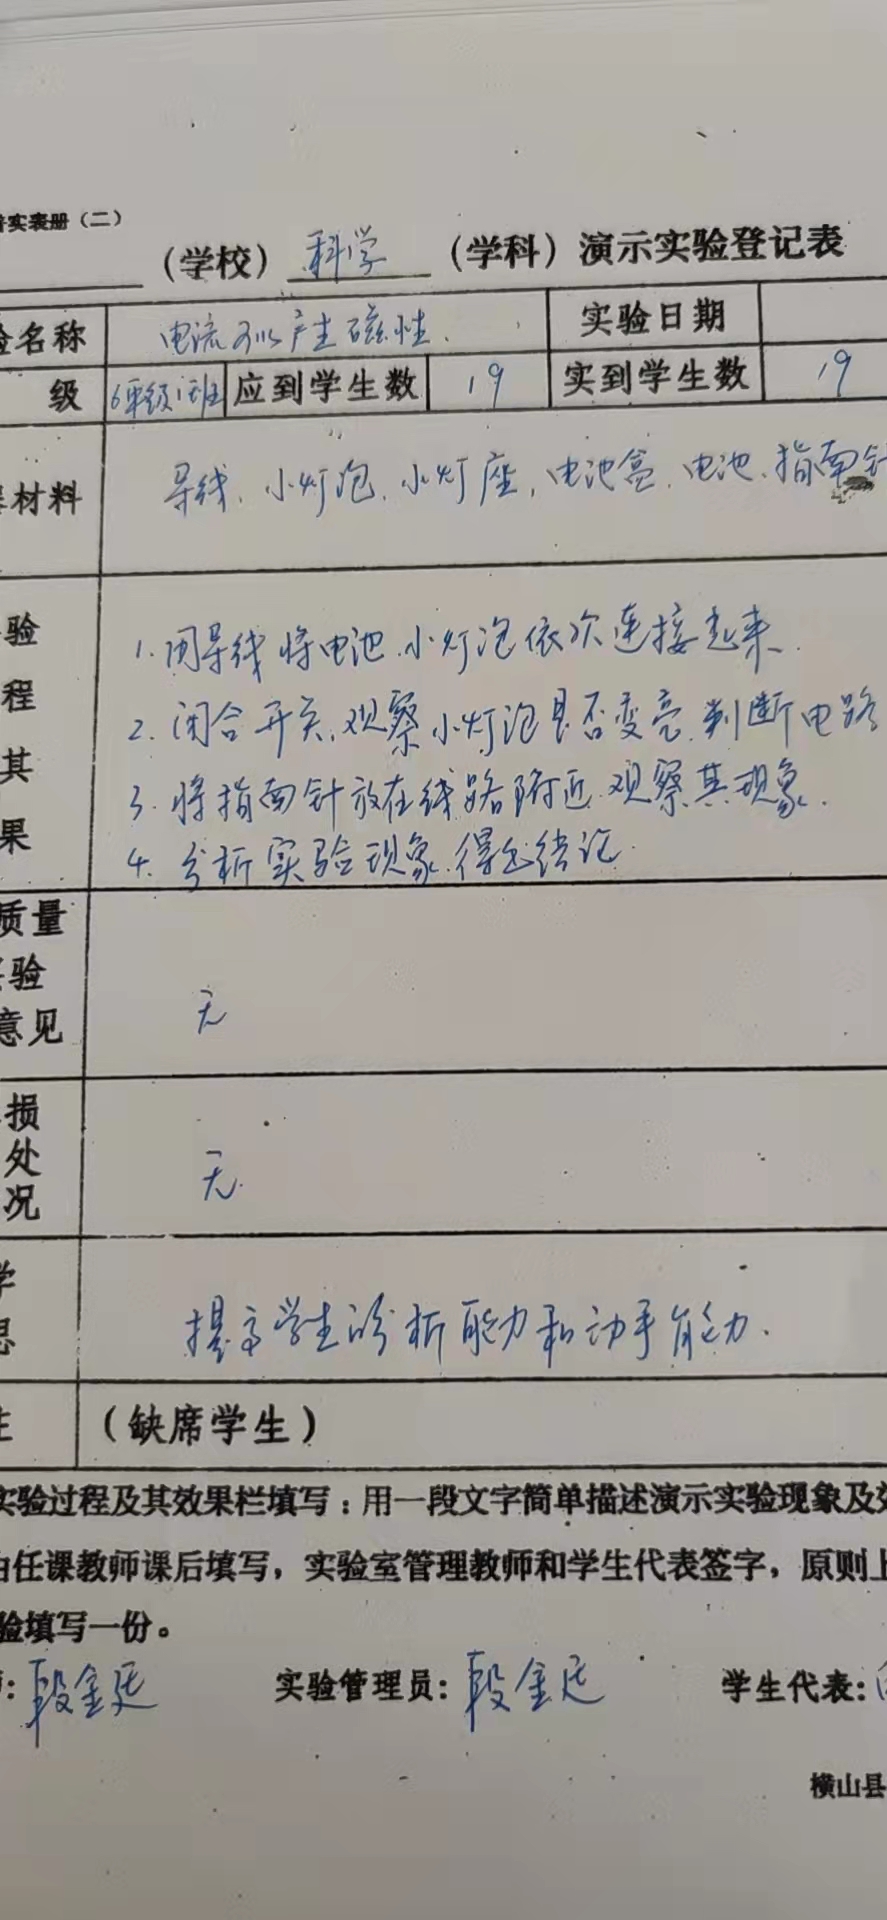 实表册（二）
（学校）科学（学科）演示实验登记表
验名称 电流可以产生磁性. 实验日期
级 6年级1班 应到学生数 19 实到学生数 19
材料 导线、小灯泡、小灯座、电池盒、电池、指南针
验 1.用导线将电池、小灯泡依次连接起来.
程 2.闭合开关,观察小灯泡是否变亮,判断电路
其 3.将指南针放在线路附近,观察其现象.
果 4.分析实验现象,得出结论.
质量
验
意见
无
损
处
况
无
学
思
提高学生的分析能力和动手能力.
（缺席学生）
实验过程及其效果栏填写：用一段文字简单描述演示实验现象及
由任课教师课后填写，实验室管理教师和学生代表签字，原则上
验填写一份。
师：段金廷 实验管理员：段金廷 学生代表：
横山县